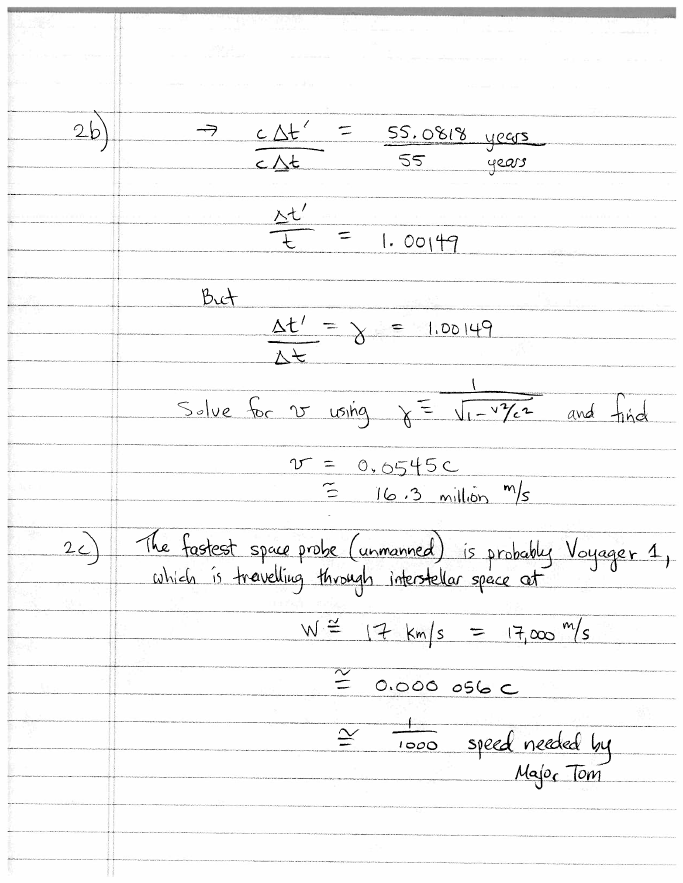 2b) → cΔt' / cΔt = 55.0818 years / 55 years
Δt' / t = 1.00149
But
Δt' / Δt = γ = 1.00149
Solve for v using γ ≡ 1 / √1-v²/c² and find
v = 0.0545c
≅ 16.3 million m/s
2c) The fastest space probe (unmanned) is probably Voyager 1,
which is travelling through interstellar space at
W ≅ 17 km/s = 17,000 m/s
≅ 0.000 056 c
≅ 1/1000 speed needed by
Major Tom